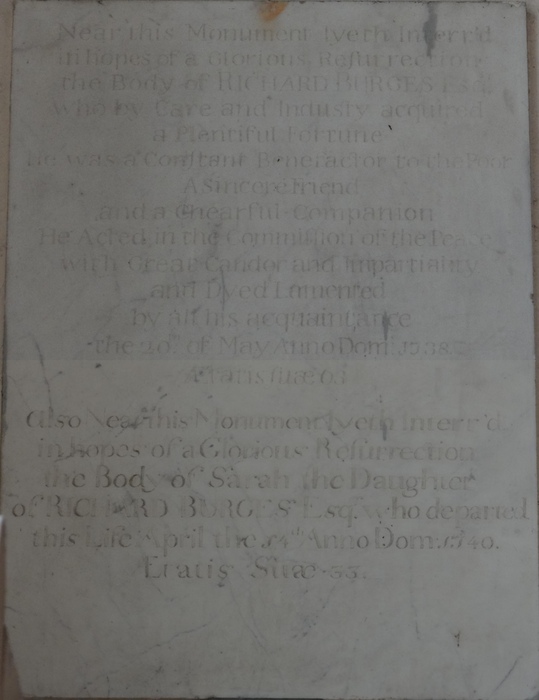 Near this Monument lyeth Interr'd
in hopes of a Glorious Resurrection
the Body of RICHARD BURGES Esqr.
who by Care and Industy acquired
a Plentiful Fortune
He was a Constant Benefactor to the Poor
A Sincere friend
and a Chearful Companion
He Acted in the Commission of the Peace
with Great Candor and Impartiality
and Dyed Lamented
by all his acquaintance
the of May Anno Dom:
Ætatis suæ
Also Near this Monument lyeth Interr'd
in hopes of a Glorious Resurrection
the Body of Sarah the Daughter
of RICHARD BURGES Esqr. who departed
this Life April the 14th Anno Dom: 1740.
Etatis Suæ 33.